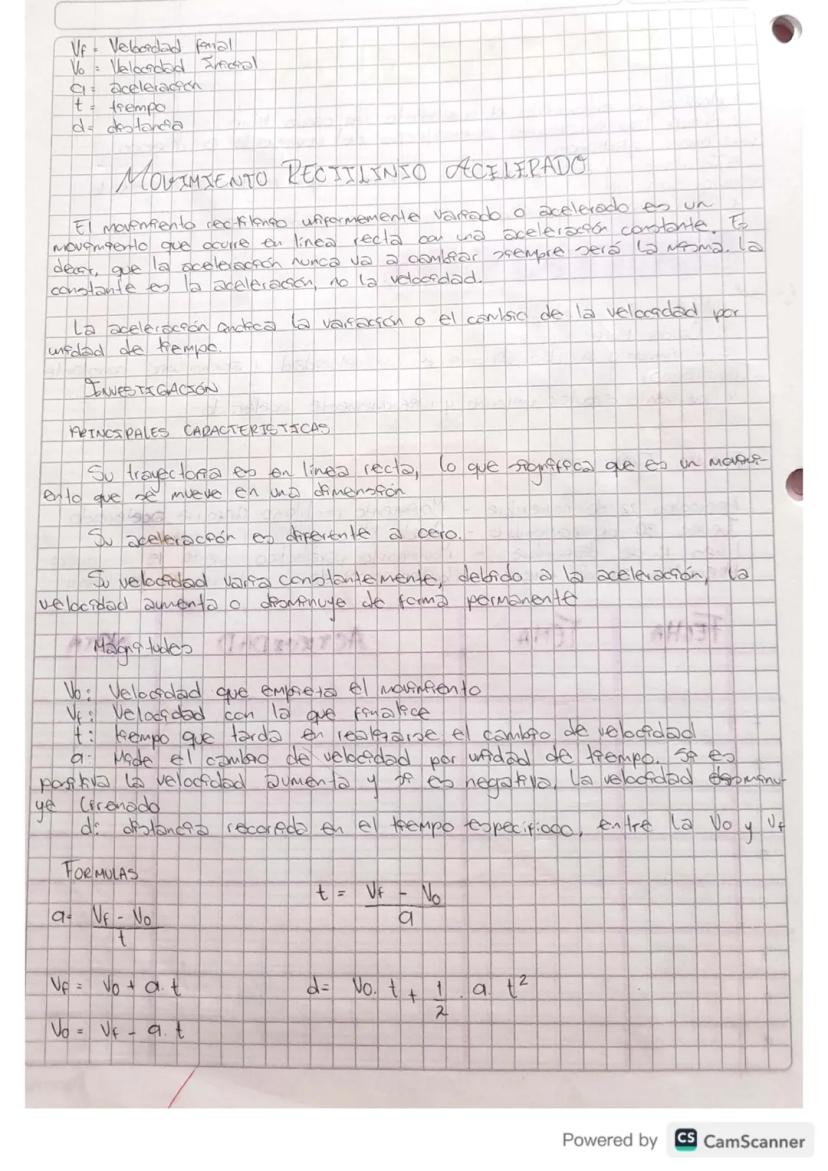 Vf = Velocidad final
Vo = Velocidad Inicial
a = aceleración
t = tiempo
d = distancia
MOVIMIENTO RECTILINIO ACELERADO
El movimiento rectilineo uniformemente variado o acelerado es un
movimiento que ocurre en línea recta con una aceleración constante. Es
decir, que la aceleración nunca va a cambiar siempre será la misma. La
constante es la aceleración, no la velocidad.
La aceleración indica la variación o el cambio de la velocidad por
unidad de tiempo.
INVESTIGACIÓN
PRINCIPALES CARACTERISTICAS
Su trayectoria es en línea recta, lo que significa que es un movimi-
ento que se mueve en una dimensión
Su aceleración es diferente a cero.
Su velocidad varia constantemente, debido a la aceleración, la
velocidad aumenta o disminuye de forma permanente
Magnitudes
Vo: Velocidad que empieza el movimiento
Vf: Velocidad con la que finalice
t: tiempo que tarda en realizarse el cambio de velocidad
a: Mide el cambio de velocidad por unidad de tiempo. Si es
positiva la velocidad aumenta y si es negativa, la velocidad disminu-
ye (frenado
d: distancia recorrida en el tiempo especificado, entre la Vo y Vf
FORMULAS
a= Vf - Vo / t
t = Vf - Vo / a
Vf = Vo + a. t
d= Vo. t + 1/2 . a t²
Vo = Vf - a. t
Powered by CS CamScanner